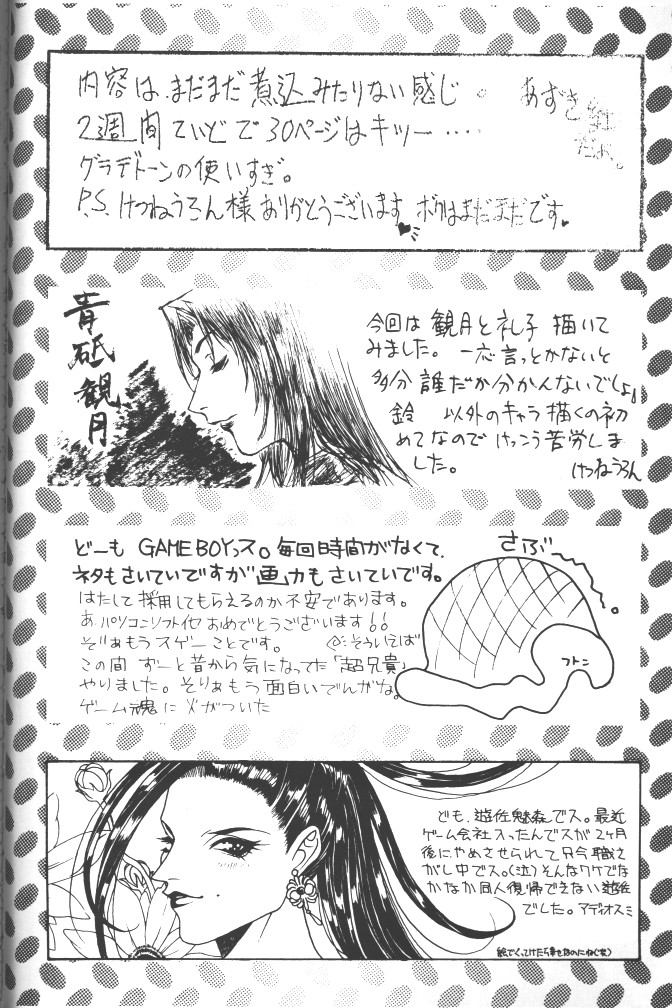 内容は、まだまだ煮込みたりない感じ。
2週間ていどで30ページはキツー‥‥
グラデトーンの使いすぎ。
P.S. けつねうろん様ありがとうございます♥ボクはまだまだです♥
あずき
だよ。
青砥観月
今回は観月と礼子描いて
みました。一応言っとかないと
多分誰だか分かんないでしょ。
鈴 以外のキャラ描くの初
めてなのでけっこう苦労しま
した。
けつねうろん
どーも GAMEBOYっス。毎回時間がなくて、
ネタもさいていですが画力もさいていです。
はたして採用してもらえるのか不安であります。
あ、パソコンソフトイヤおめでとうございます!!
そりあもうスゲーことです。
そういえば
この間 ずーと昔から気になってた「超兄貴」
やりました。そりぁもう面白いでんがな。
ゲーム魂に火がついた
さぶー
フトン
ども、遊佐魅森でス。最近
ゲーム会社入ったんでスが2ヶ月
後にやめさせられて只今職さ
がし中でス。(泣)そんなワケでな
かなか同人復帰できない遊佐
でした。アディオス